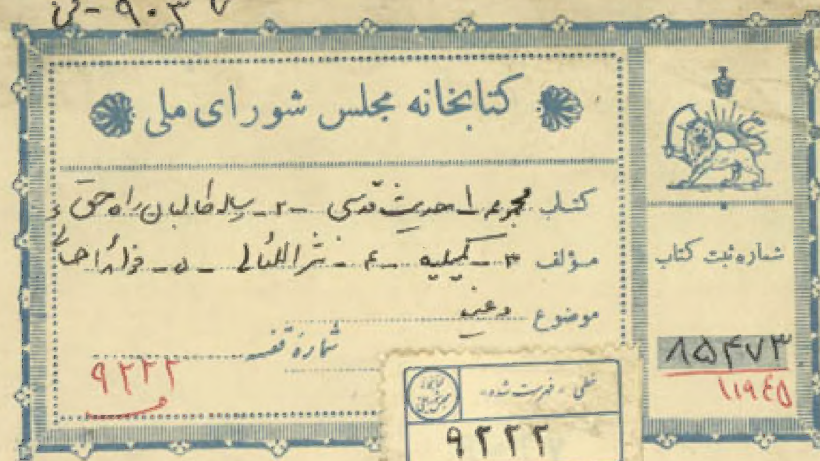 ۹۰۳۷ - فن
کتابخانه مجلس شورای ملی
کتاب مجموعه ۱- حدیث قدسی - ۲- رساله طالبان راه حق
مؤلف ۳- کمیلیه - ۴- نثر اللئالی - ۵-
موضوع
شماره قفسه
۹۲۲۲
شماره ثبت کتاب
۸۵۴۷۳
۱۱۹۴۵
خطی « فهرست شده »
۹۲۲۲